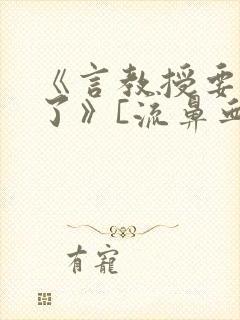 《言教授要
了》[流鼻血
有寵